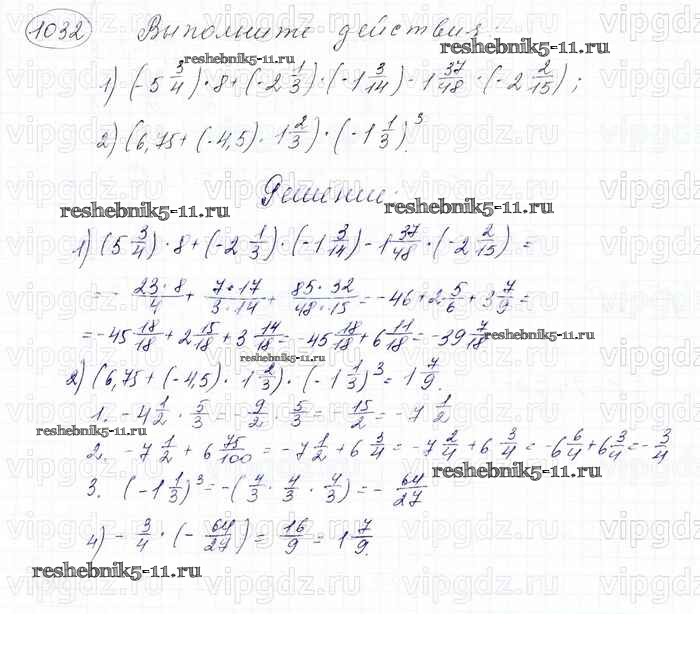 1032 Выполните действия:
reshebnik5-11.ru
1) (-5 3/4) · 8 + (-2 1/3) · (-1 3/14) - 1 37/48 · (-2 2/15);
2) (6,75 + (-4,5) · 1 2/3) · (-1 1/3)^3.
Решение.
reshebnik5-11.ru reshebnik5-11.ru
1) (5 3/4) · 8 + (-2 1/3) · (-1 3/14) - 1 37/48 · (-2 2/15) =
= - 23·8/4 + 7·17/3·14 + 85·32/48·15 = -46 + 2 5/6 + 3 7/9 =
= -45 18/18 + 2 15/18 + 3 14/18 = -45 18/18 + 6 11/18 = -39 7/18
reshebnik5-11.ru
reshebnik5-11.ru
2) (6,75 + (-4,5) · 1 2/3) · (-1 1/3)^3 = 1 7/9.
1. -4 1/2 · 5/3 = - 9/2 · 5/3 = - 15/2 = -7 1/2
reshebnik5-11.ru
2. -7 1/2 + 6 75/100 = -7 1/2 + 6 3/4 = -7 2/4 + 6 3/4 = -6 6/4 + 6 3/4 = - 3/4
reshebnik5-11.ru
3. (-1 1/3)^3 = -(4/3 · 4/3 · 4/3) = - 64/27
4) - 3/4 · (- 64/27) = 16/9 = 1 7/9.
reshebnik5-11.ru
vipgdz.ru